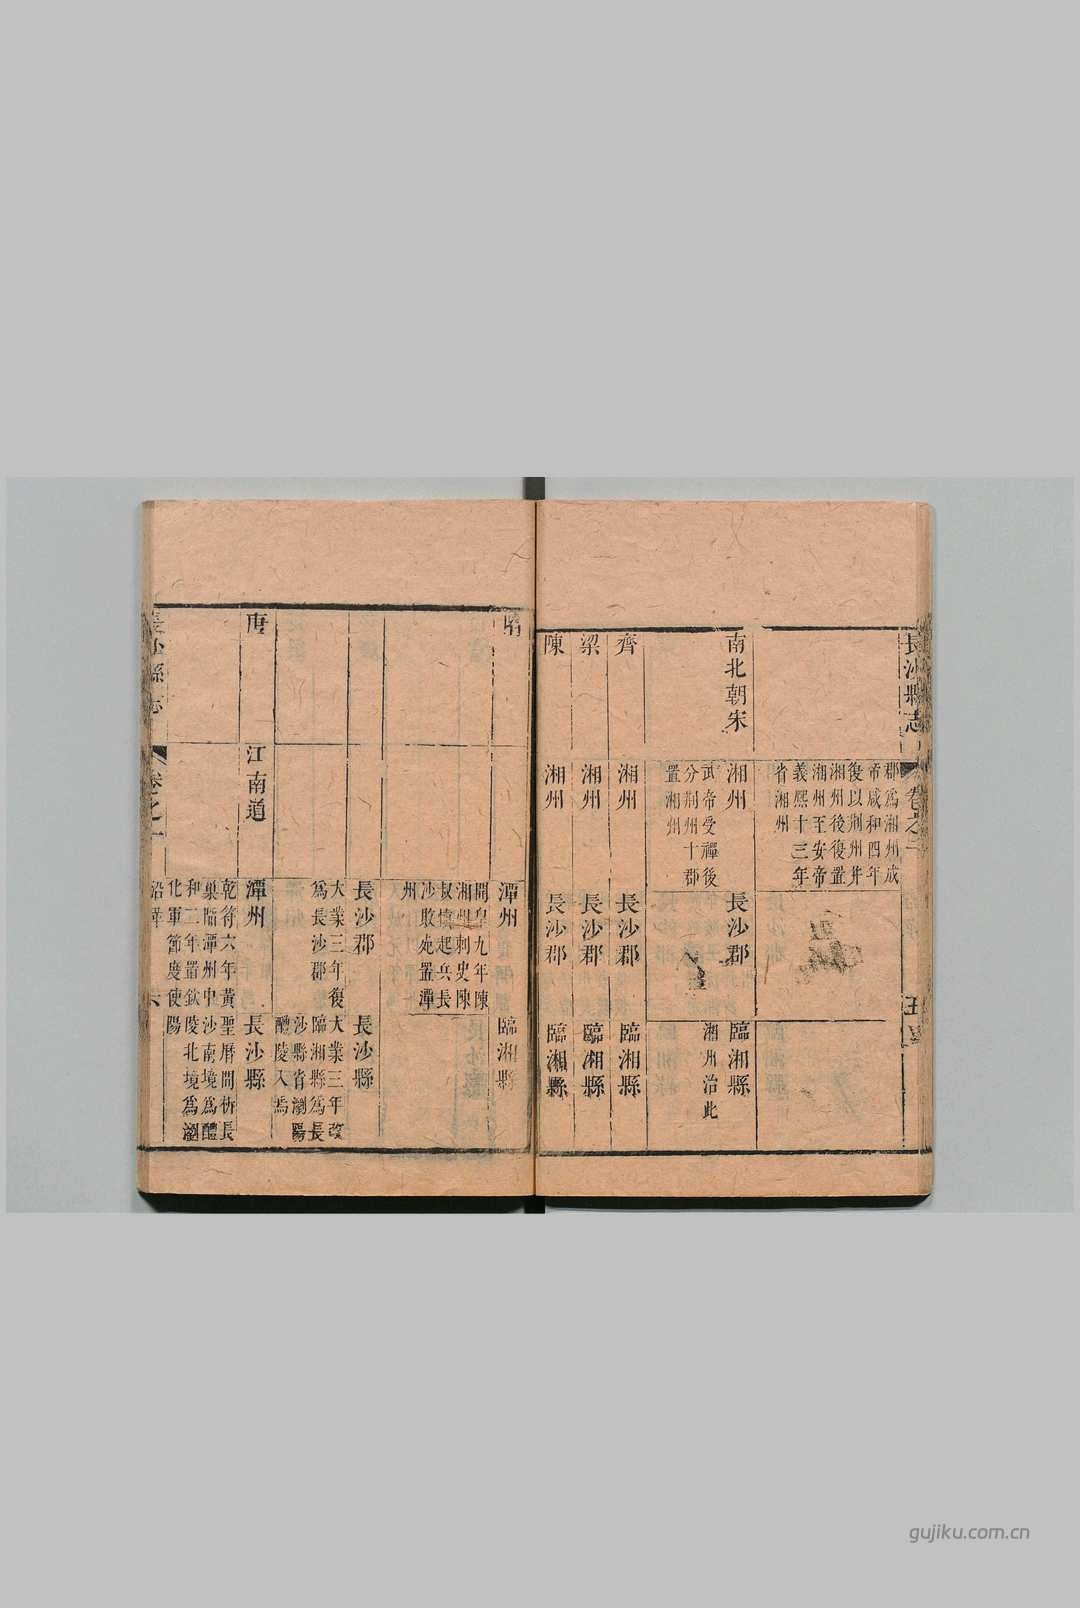 長沙縣志
卷之一
五
郡爲湘州成
帝咸和四年
復以荆州并
湘州後復置
湘州至安帝
義熙十三年
省湘州
南北朝宋
湘州
武帝受禪後
分荆州十郡
置湘州
長沙郡
臨湘縣
湘州治此
齊
湘州
長沙郡
臨湘縣
梁
湘州
長沙郡
臨湘縣
陳
湘州
長沙郡
臨湘縣
隋
潭州
開皇九年陳
湘州刺史陳
叔慎起兵長
沙敗死置潭
州
臨湘縣
長沙郡
大業三年復
爲長沙郡
長沙縣
大業三年改
臨湘縣爲長
沙縣省瀏陽
醴陵入焉
唐
江南道
潭州
乾符六年黃
巢陷潭州中
和二年置欽
化軍節度使
長沙縣
聖曆間析長
沙南境爲醴
陵北境爲瀏
陽
長沙縣志
卷之一
沿革
六
gujiku.com.cn